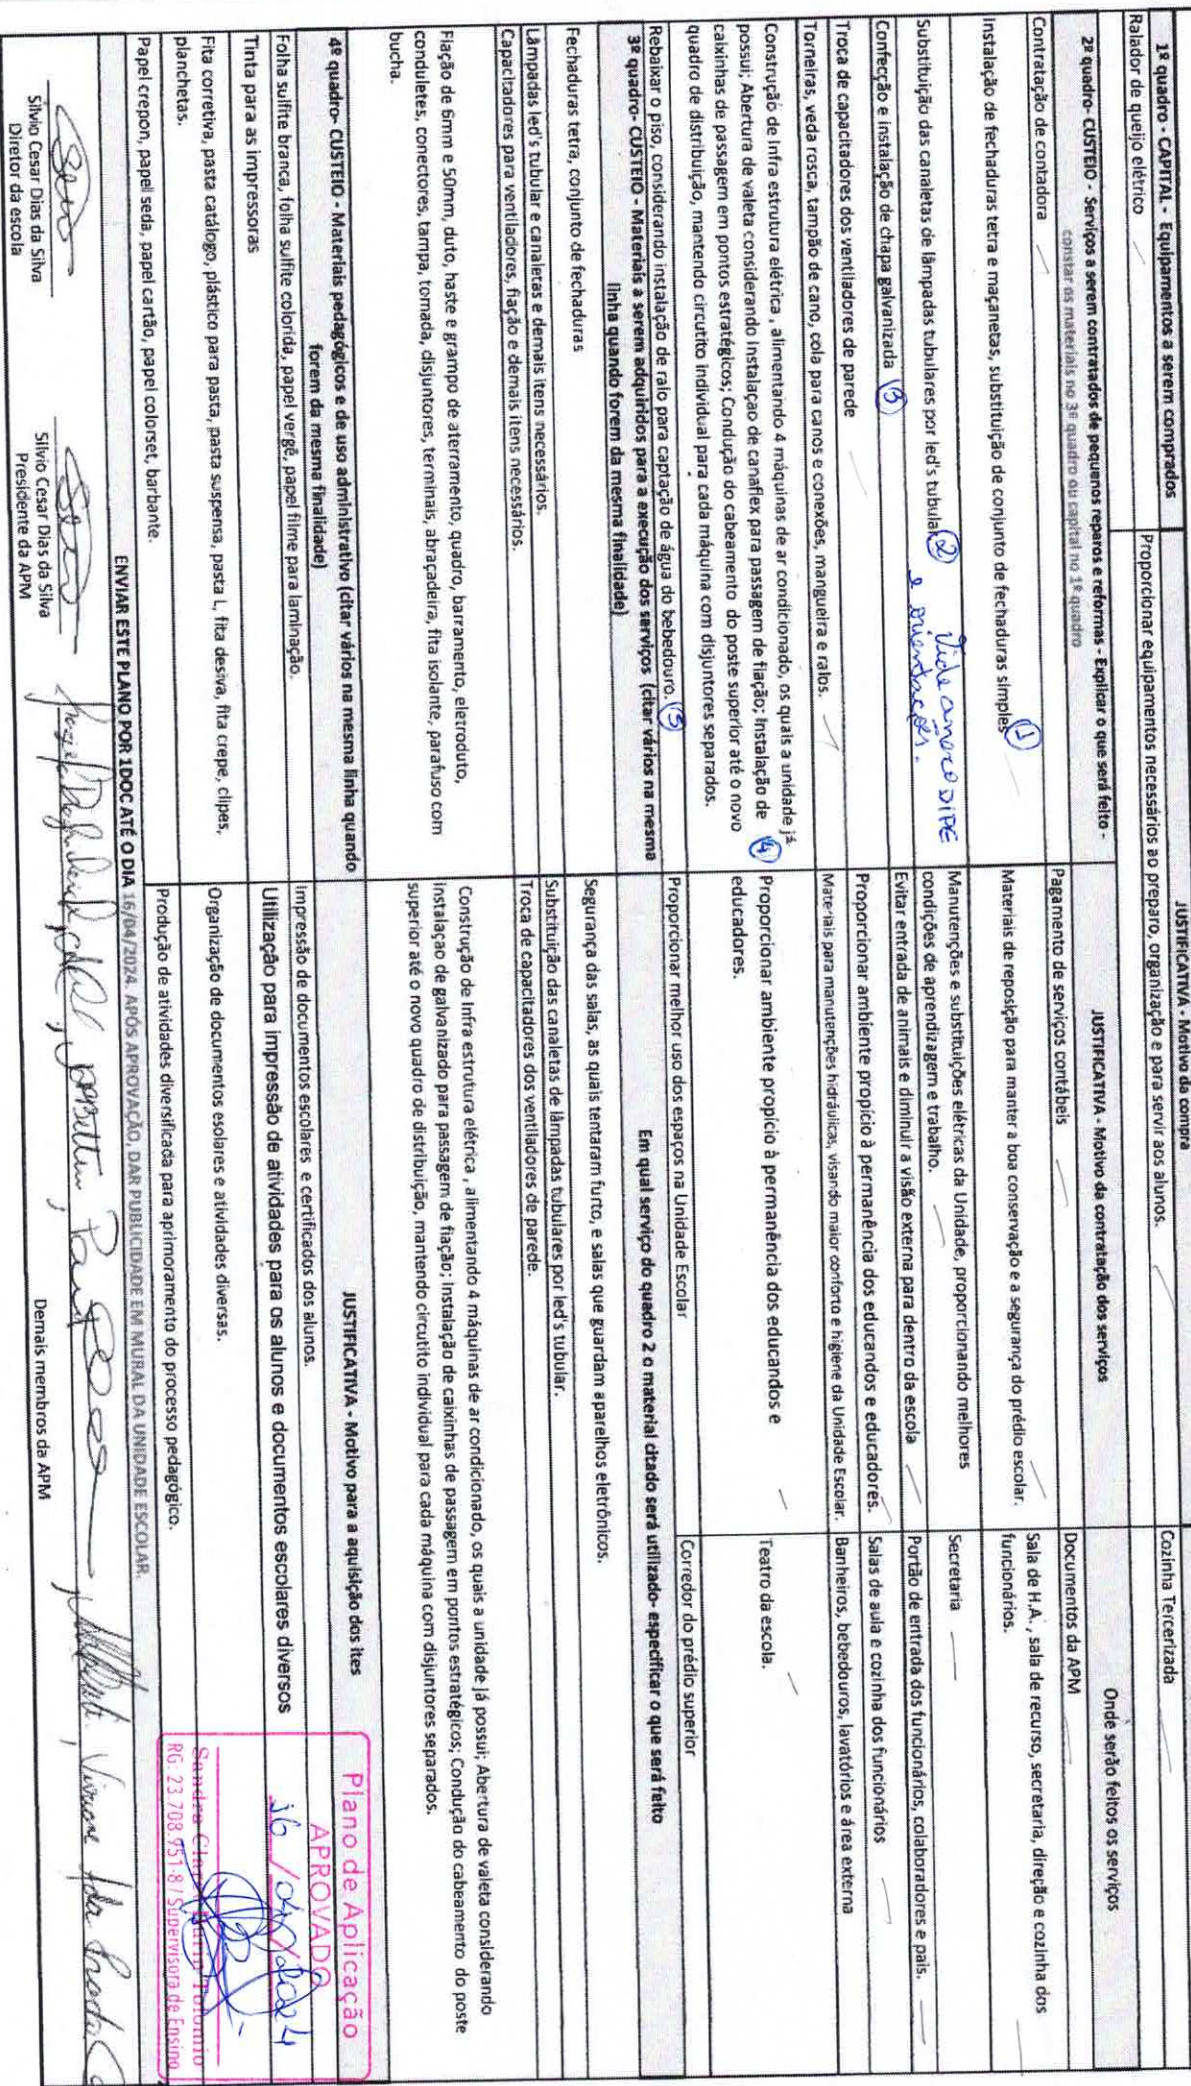 1º quadro - CAPITAL - Equipamentos a serem comprados
JUSTIFICATIVA - Motivo da compra
Ralador de queijo elétrico
Proporcionar equipamentos necessários ao preparo, organização e para servir aos alunos.
Cozinha Tercerizada
2º quadro- CUSTEIO - Serviços a serem contratados de pequenos reparos e reformas - Explicar o que será feito -
constar os materiais no 3º quadro ou capital no 1º quadro
JUSTIFICATIVA - Motivo da contratação dos serviços
Onde serão feitos os serviços
Contratação de contadora
Pagamento de serviços contábeis
Documentos da APM
Instalação de fechaduras tetra e maçanetas, substituição de conjunto de fechaduras simples 1
Materiais de reposição para manter a boa conservação e a segurança do prédio escolar.
Sala de H.A., sala de recurso, secretaria, direção e cozinha dos
funcionários.
Substituição das canaletas de lâmpadas tubulares por led's tubular 2 Vide anexo DIPE
e orientações.
Manutenções e substituições elétricas da Unidade, proporcionando melhores
condições de aprendizagem e trabalho.
Secretaria
Confecção e instalação de chapa galvanizada 3
Evitar entrada de animais e diminuir a visão externa para dentro da escola
Portão de entrada dos funcionários, colaboradores e pais.
Troca de capacitadores dos ventiladores de parede
Proporcionar ambiente propício à permanência dos educandos e educadores.
Salas de aula e cozinha dos funcionários
Torneiras, veda rosca, tampão de cano, cola para canos e conexões, mangueira e ralos.
Materiais para manutenções hidráulicas, visando maior conforto e higiene da Unidade Escolar.
Banheiros, bebedouros, lavatórios e área externa
Construção de Infra estrutura elétrica , alimentando 4 máquinas de ar condicionado, os quais a unidade já
possui; Abertura de valeta considerando instalaçao de canaflex para passagem de fiação; Instalação de 4
caixinhas de passagem em pontos estratégicos; Condução do cabeamento do poste superior até o novo
quadro de distribuição, mantendo circutito individual para cada máquina com disjuntores separados.
Proporcionar ambiente propício à permanência dos educandos e
educadores.
Teatro da escola.
Rebaixar o piso, considerando instalação de ralo para captação de água do bebedouro. 5
Proporcionar melhor uso dos espaços na Unidade Escolar
Corredor do prédio superior
3º quadro- CUSTEIO - Materiais a serem adquiridos para a execução dos serviços (citar vários na mesma
linha quando forem da mesma finalidade)
Em qual serviço do quadro 2 o material citado será utilizado- especificar o que será feito
Fechaduras tetra, conjunto de fechaduras
Segurança das salas, as quais tentaram furto, e salas que guardam aparelhos eletrônicos.
Lâmpadas led's tubular e canaletas e demais itens necessários.
Substituição das canaletas de lâmpadas tubulares por led's tubular.
Capacitadores para ventiladores, fiação e demais itens necessários.
Troca de capacitadores dos ventiladores de parede.
Fiação de 6mm e 50mm, duto, haste e grampo de aterramento, quadro, barramento, eletroduto,
conduletes, conectores, tampa, tomada, disjuntores, terminais, abraçadeira, fita isolante, parafuso com
bucha.
Construção de Infra estrutura elétrica , alimentando 4 máquinas de ar condicionado, os quais a unidade já possui; Abertura de valeta considerando
instalaçao de galvanizado para passagem de fiação; Instalação de caixinhas de passagem em pontos estratégicos; Condução do cabeamento do poste
superior até o novo quadro de distribuição, mantendo circutito individual para cada máquina com disjuntores separados.
4º quadro- CUSTEIO - Materiais pedagógicos e de uso administrativo (citar vários na mesma linha quando
forem da mesma finalidade)
JUSTIFICATIVA - Motivo para a aquisição dos ites
Folha sulfite branca, folha sulfite colorida, papel vergê, papel filme para laminação.
Impressão de documentos escolares e certificados dos alunos.
Tinta para as impressoras
Utilização para impressão de atividades para os alunos e documentos escolares diversos
Fita corretiva, pasta catálogo, plástico para pasta, pasta suspensa, pasta L, fita desiva, fita crepe, clipes,
planchetas.
Organização de documentos esolares e atividades diversas.
Papel crepon, papel seda, papel cartão, papel colorset, barbante.
Produção de atividades diversificada para aprimoramento do processo pedagógico.
Plano de Aplicação
APROVADO
16/04/2024
RG: 23.708.951-8 / Supervisora de Ensino
ENVIAR ESTE PLANO POR 1DOC ATÉ O DIA 16/04/2024. APÓS APROVAÇÃO, DAR PUBLICIDADE EM MURAL DA UNIDADE ESCOLAR.
Silvio Cesar Dias da Silva
Diretor da escola
Silvio Cesar Dias da Silva
Presidente da APM
Demais membros da APM